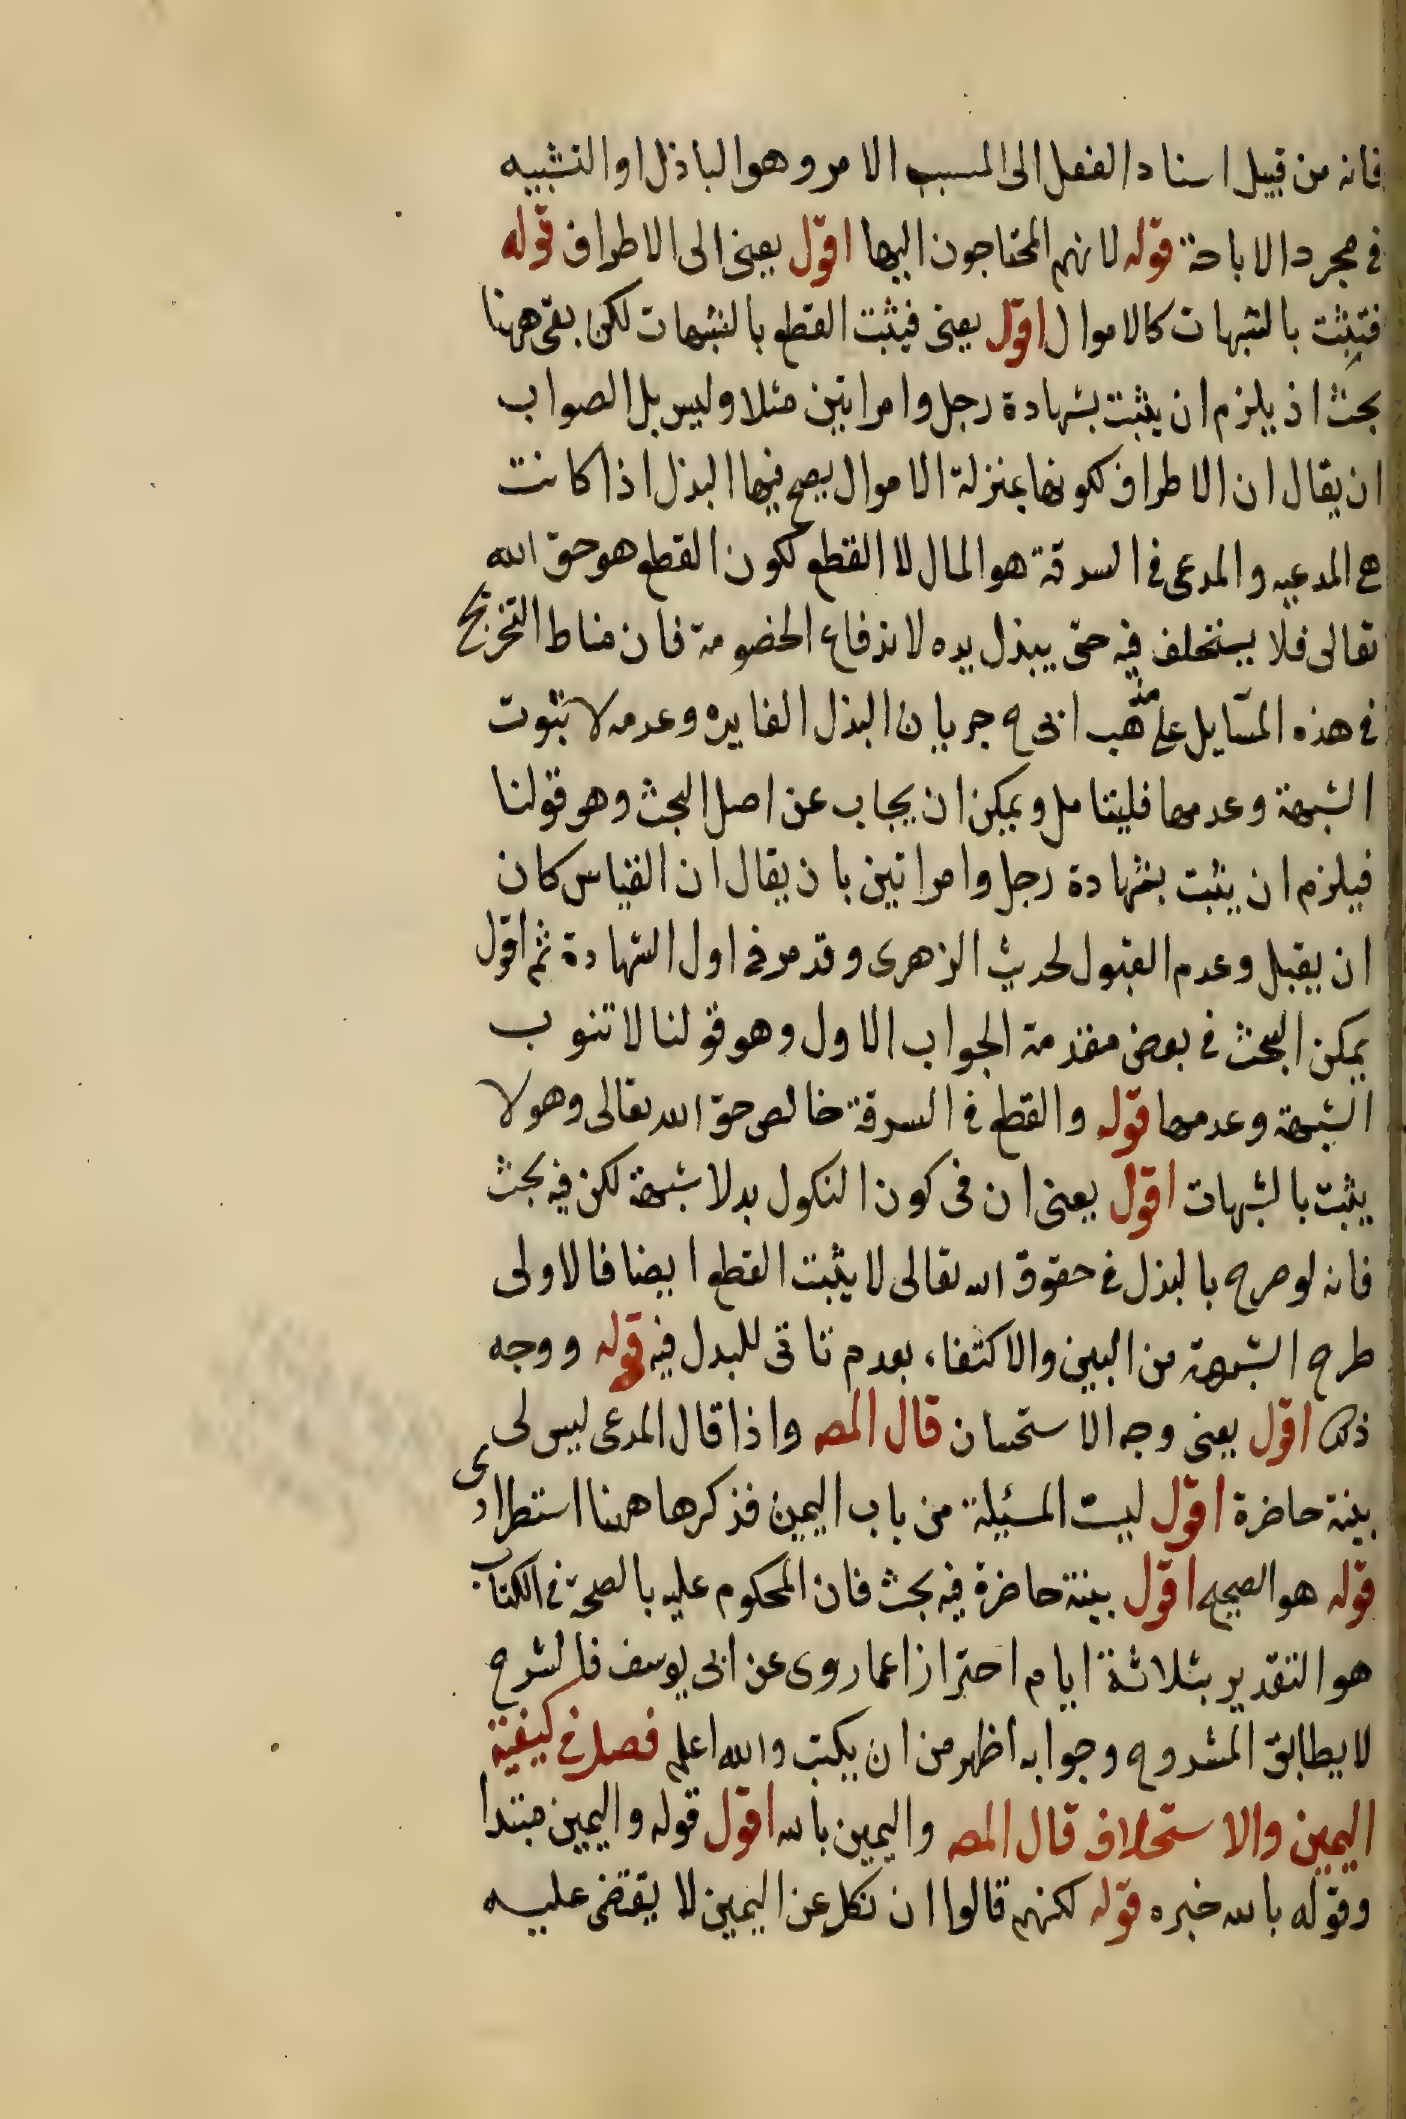 فانه من قبيل اسناد الفعل الى المسبب الامر وهو الباذل او التشبيه
في مجرد الاباحة قوله لانهم المحتاجون اليها اقول يعني الى الاطراف قوله
فتثبت بالشبهات كالاموال اقول يعني فيثبت القطع بالشبهات لكن بقي ههنا
بحث اذ يلزم ان يثبت بشهادة رجل وامراتين مثلا وليس بل الصواب
ان يقال ان الاطراف لكونها بمنزلة الاموال يصح فيها البذل اذا كانت
هي المدعيه والمدعى في السرقة هو المال لا القطع لكون القطع هو حق الله
تعالى فلا يستحلف فيه حتى يبذل يده لاندفاع الخصومة فان مناط التخريج
في هذه المسايل على مذهب ابى ح جريان البذل الفايده وعدمه لا ثبوت
الشبهة وعدمها فليتامل ويمكن ان يجاب عن اصل البحث وهو قولنا
فيلزم ان يثبت بشهادة رجل وامراتين بان يقال ان القياس كان
ان يقبل وعدم القبول لحديث الزهرى وقد مر في اول الشهادة ثم اقول
يمكن البحث في بعض مقدمة الجواب الاول وهو قولنا لا تنوب
الشبهة وعدمها قوله والقطع في السرقة خالص حق الله تعالى وهو لا
يثبت بالشبهات اقول يعنى ان فى كون النكول بدلا شبهة لكن فيه بحث
فانه لو صرح بالبذل في حقوق الله تعالى لا يثبت القطع ايضا فالاولى
طرح الشبهة من البين والاكتفاء بعدم تاتى للبدل فيه قوله ووجه
ذلك اقول يعنى وجه الاستحسان قال المصـ واذا قال المدعى ليس لى
بينة حاضرة اقول ليست المسئلة من باب اليمين فذكرها ههنا استطرادى
قوله هو الصحيح اقول بينة حاضرة فيه بحث فان المحكوم عليه بالصحة في الكتاب
هو التقدير بثلاثة ايام احترازا عما روى عن ابى يوسف فالشرح
لا يطابق المشروح وجوابه اظهر من ان يكتب والله اعلم فصل في كيفية
اليمين والاستحلاف قال المصـ واليمين بالله اقول قوله واليمين مبتدا
وقوله بالله خبره قوله لكنهم قالوا ان نكل عن اليمين لا يقتضى عليه